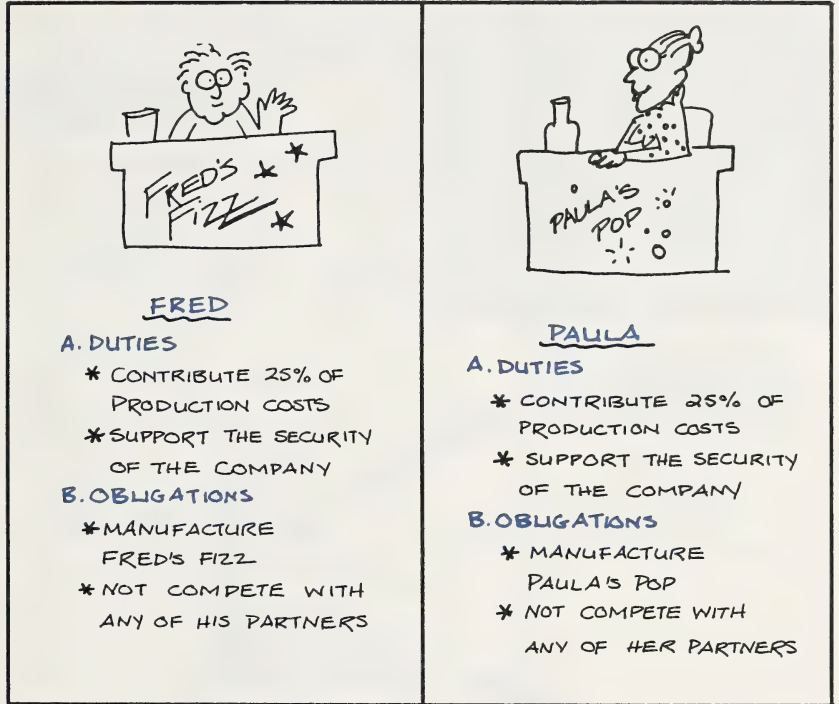 FRED'S
FIZZ
FRED
A. DUTIES
* CONTRIBUTE 25% OF
PRODUCTION COSTS
* SUPPORT THE SECURITY
OF THE COMPANY
B. OBLIGATIONS
* MANUFACTURE
FRED'S FIZZ
* NOT COMPETE WITH
ANY OF HIS PARTNERS
PAULA'S
POP
PAULA
A. DUTIES
* CONTRIBUTE 25% OF
PRODUCTION COSTS
* SUPPORT THE SECURITY
OF THE COMPANY
B. OBLIGATIONS
* MANUFACTURE
PAULA'S POP
* NOT COMPETE WITH
ANY OF HER PARTNERS